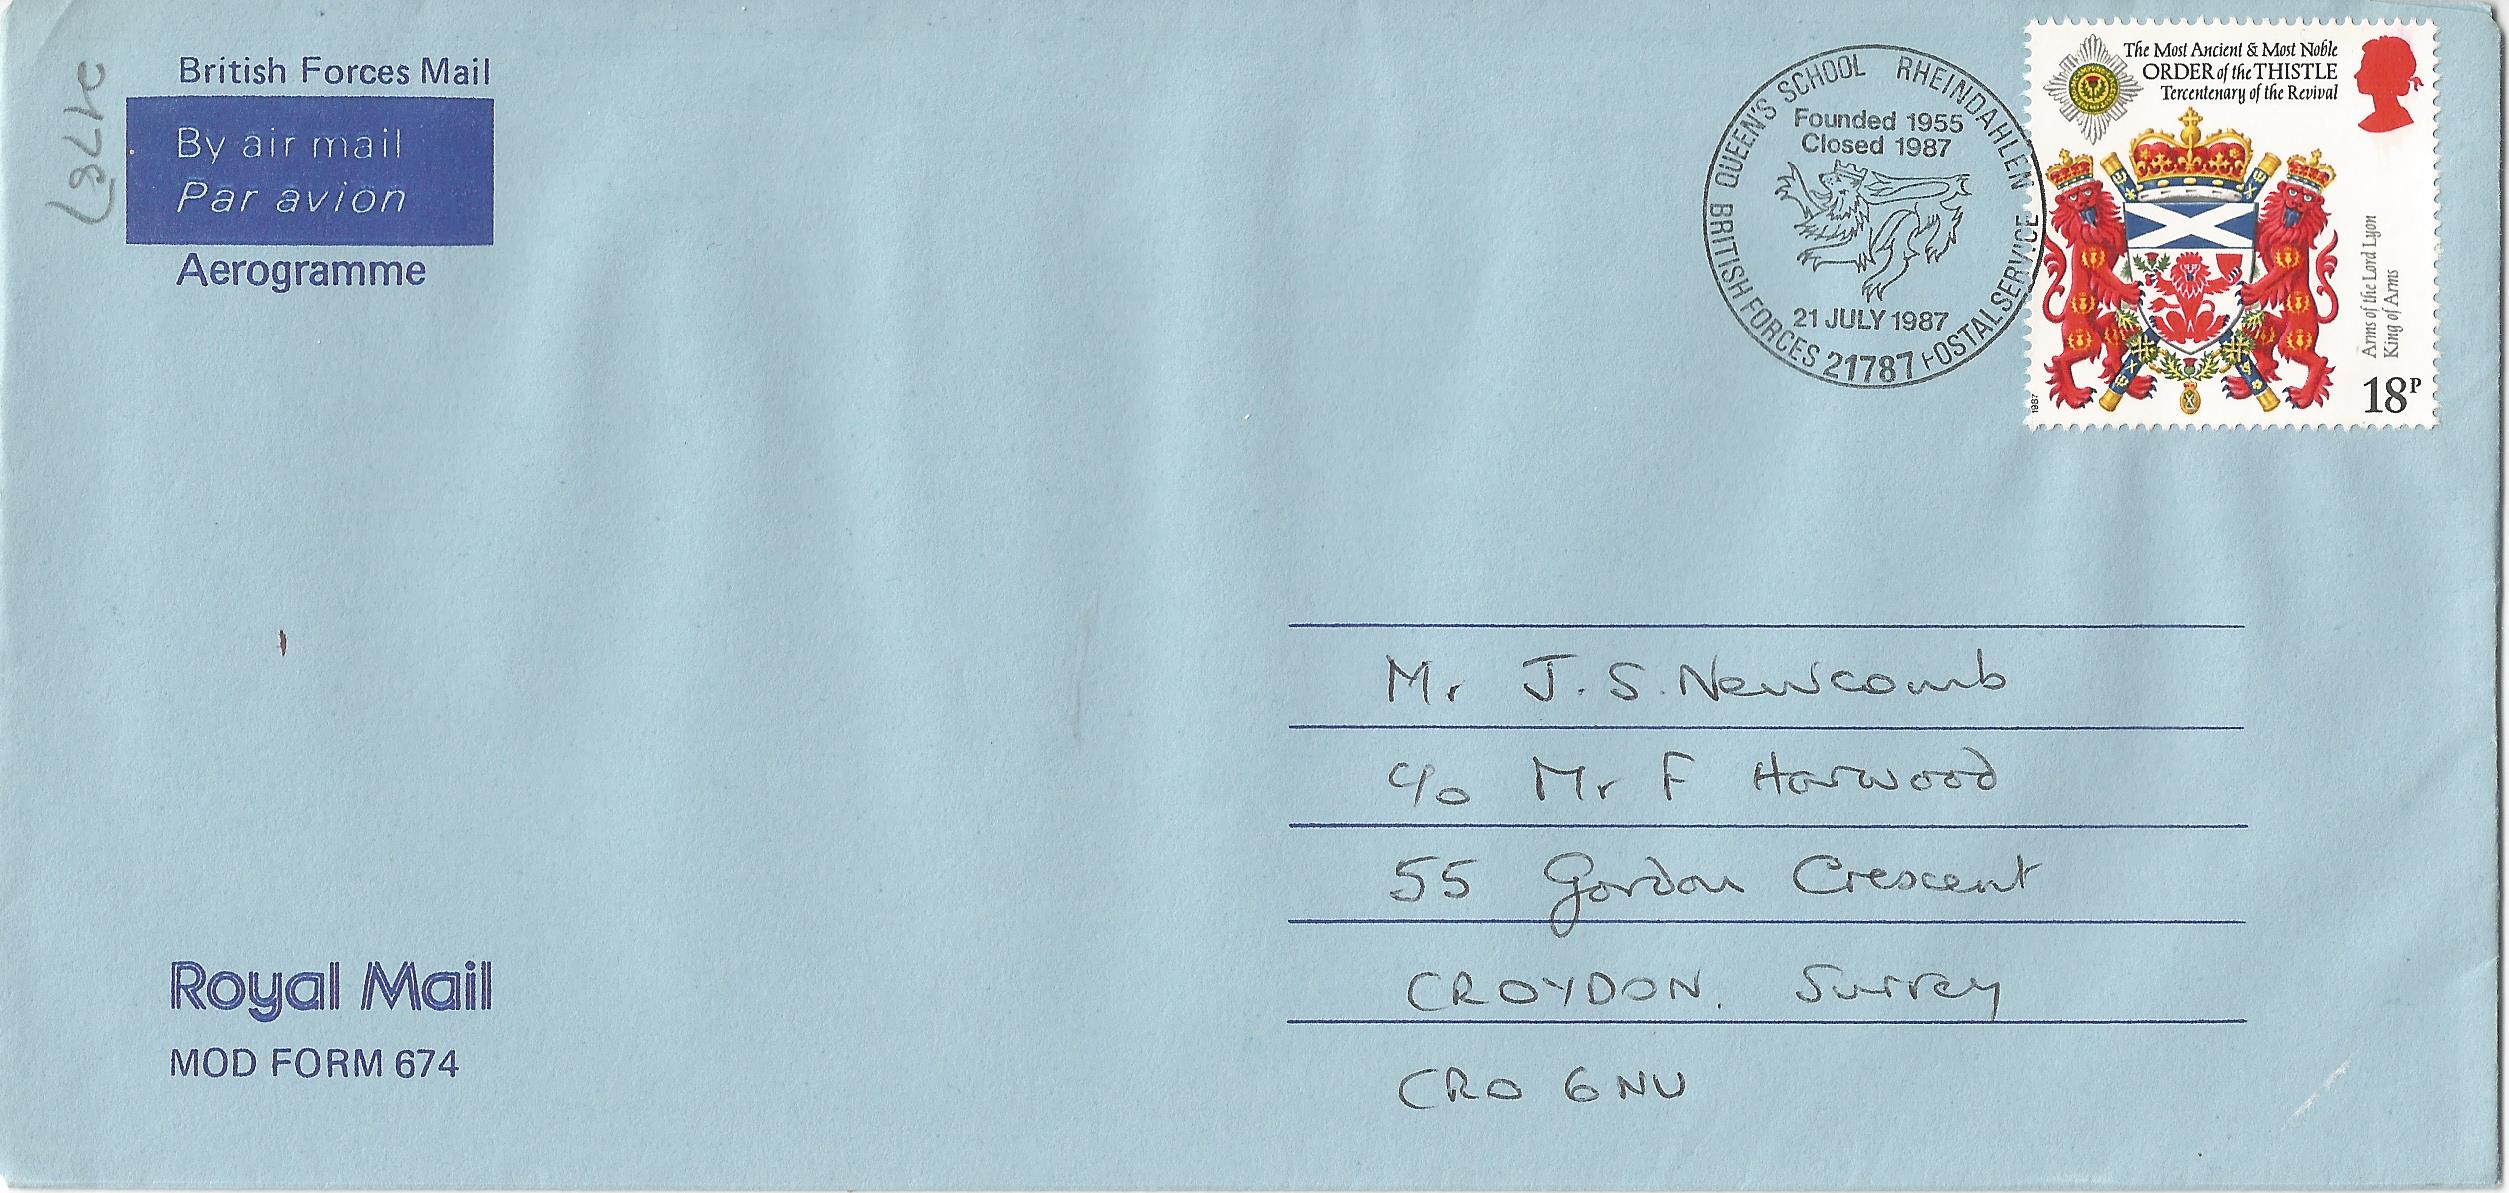 British Forces Mail
By air mail
Par avion
Aerogramme
21787
QUEEN'S SCHOOL RHEINDAHLEN
Founded 1955
Closed 1987
21 JULY 1987
BRITISH FORCES 21787 POSTAL SERVICE
The Most Ancient & Most Noble
ORDER of the THISTLE
Tercentenary of the Revival
Arms of the Lord Lyon
King of Arms
18P
1987
Mr J.S. Newcomb
c/o Mr F Harwood
55 Gordon Crescent
CROYDON. Surrey
CRO 6NU
Royal Mail
MOD FORM 674